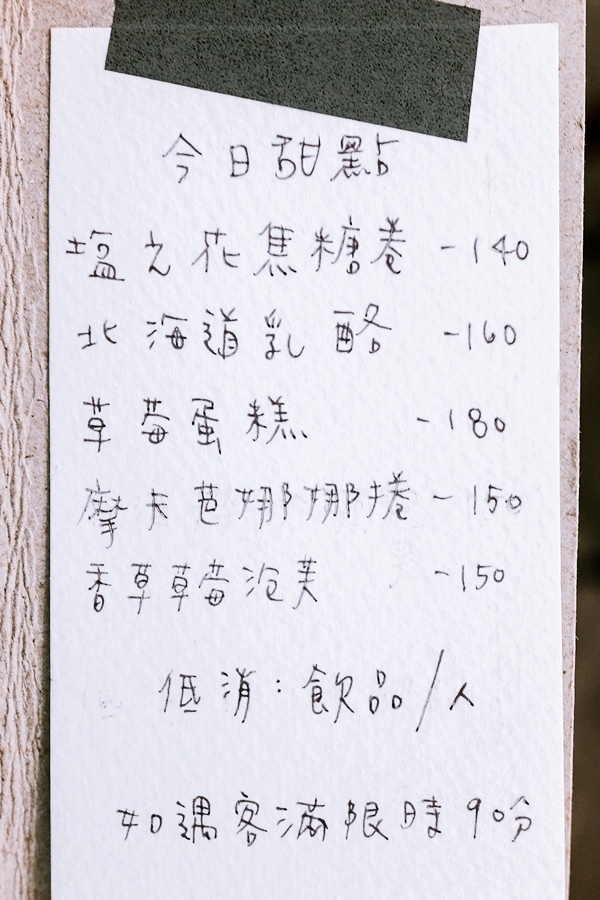 今日甜點
塩之花焦糖卷 -140
北海道乳酪 -160
草莓蛋糕 -180
摩卡芭娜娜捲 -150
香草草莓泡芙 -150
低消:飲品/人
如遇客滿限時90分